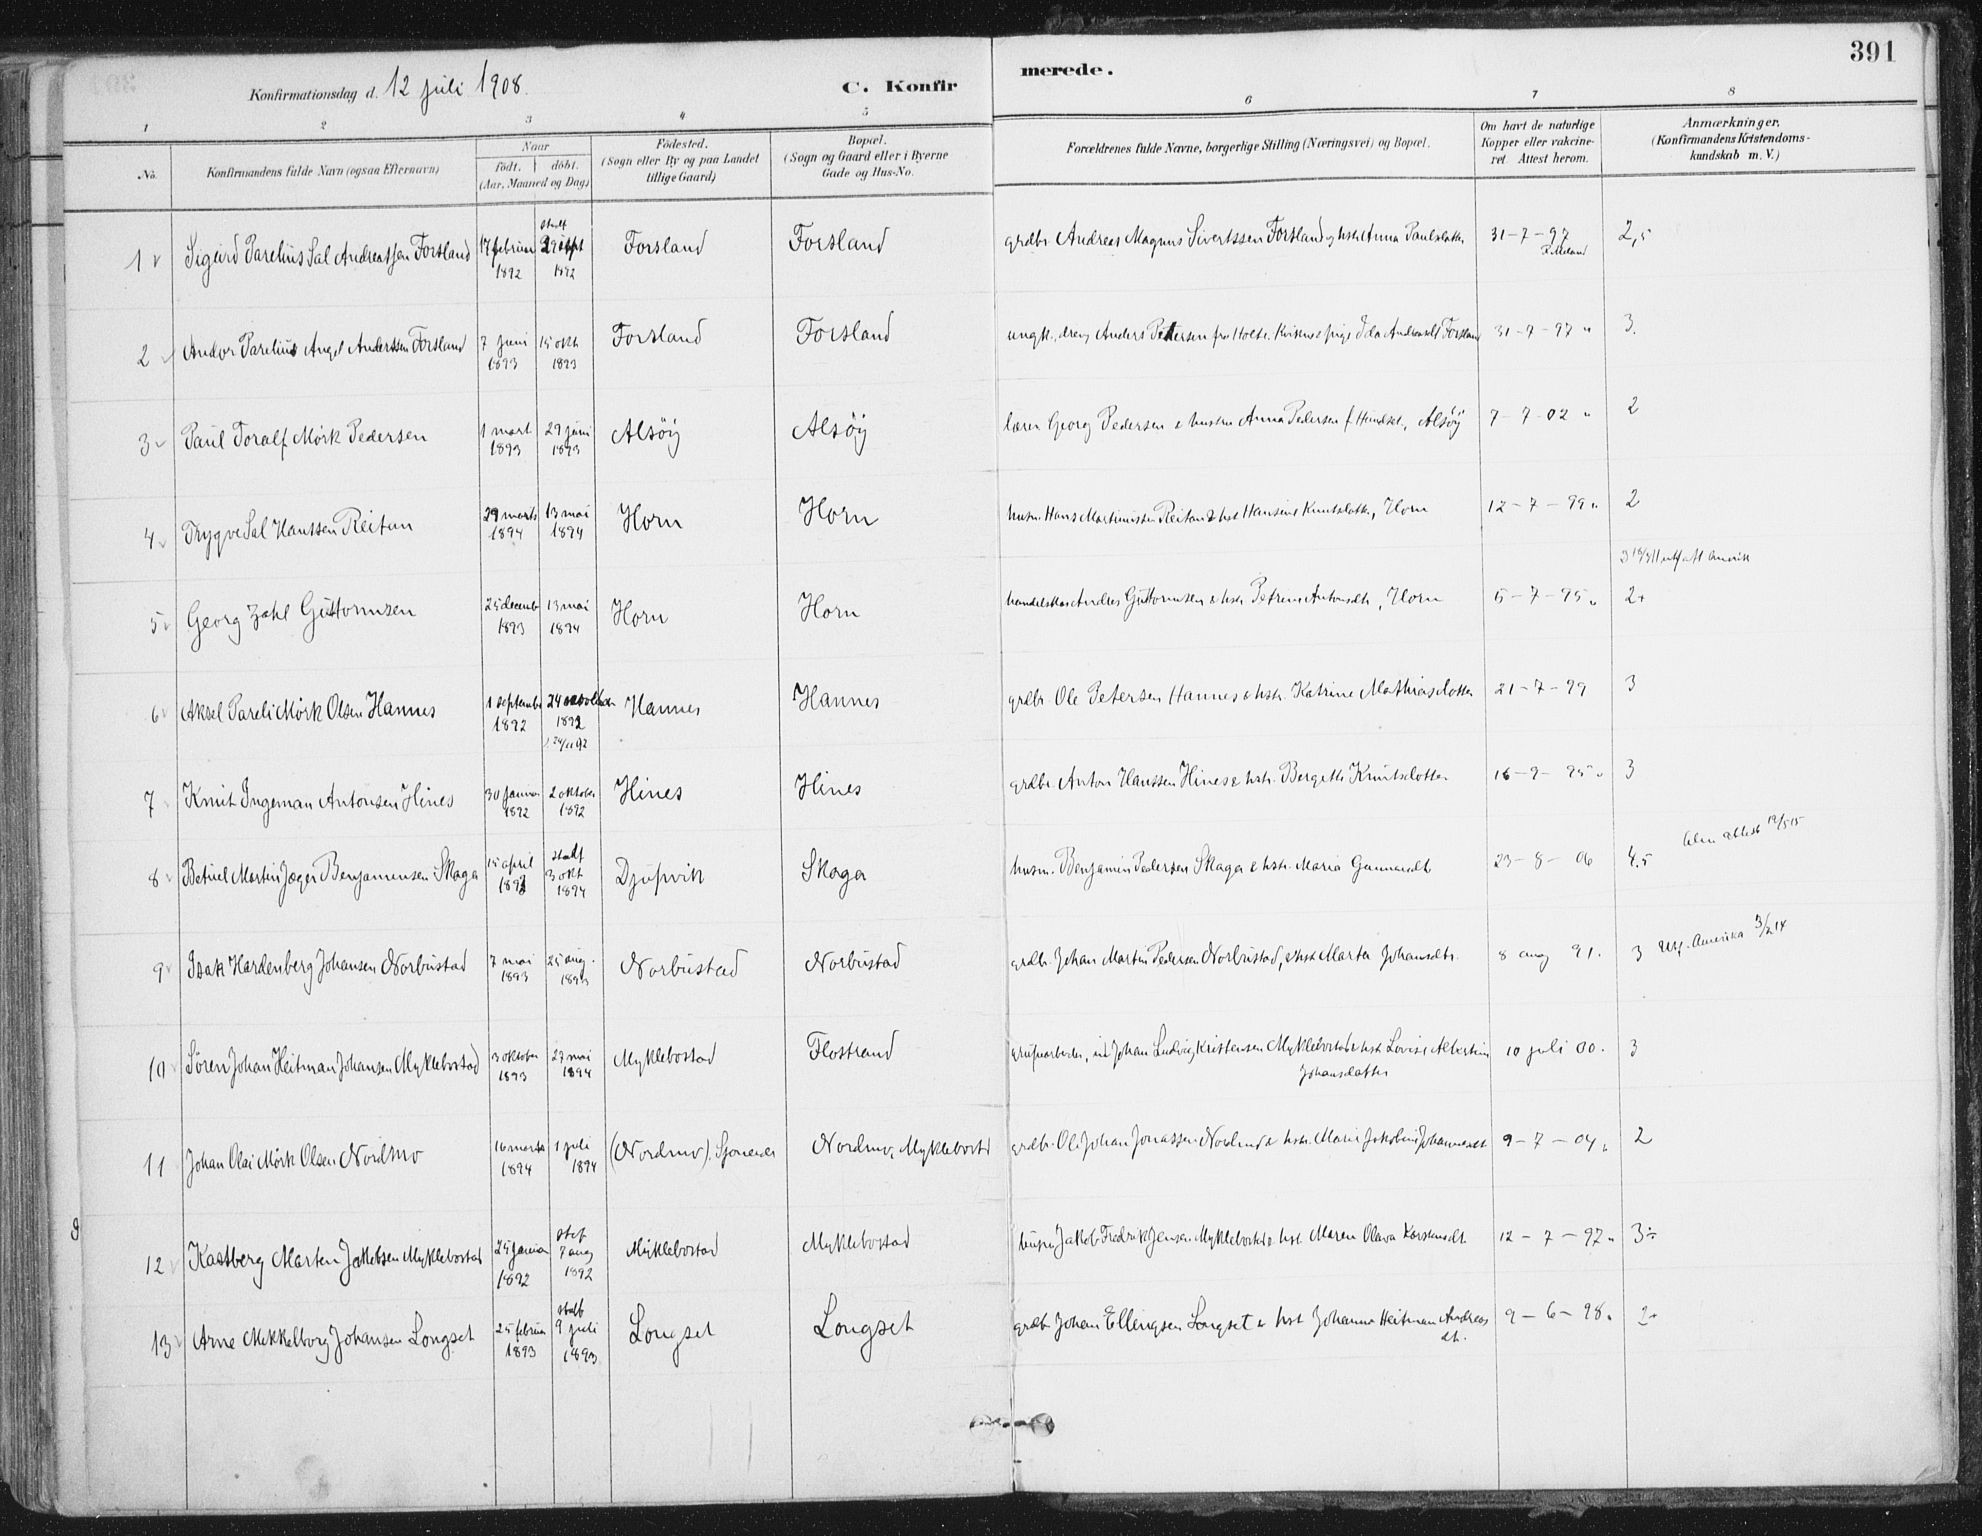 391
Konfirmationsdag d. 12 juli 1908.
C. Konfirmerede.
1 2 3 4 5 6 7 8
No. Konfirmandens fulde Navn (ogsaa Efternavn) Naar födt. döbt. (Aar, Maaned og Dag) Födested. (Sogn eller By og paa Landet tillige Gaard) Bopæl. (Sogn og Gaard eller i Byerne Gade og Hus-No. Forældrenes fulde Navne, borgerlige Stilling (Næringsvei) og Bopæl. Om havt de naturlige Kopper eller vakcineret. Attest herom. Anmærkninger. (Konfirmandens Kristendomskundskab m. V.)
1 Sigurd Parelius Sal Andreassen Forsland 17 februar 1892 1892 Forsland Forsland grdbr Andreas Magnus Sivertssen Forsland og hstr Anna Paulsdatter 31-7-97 2,5
2 Andor Parelius Angel Anderssen Forsland 7 juni 1893 15 okt 1893 Forsland Forsland ungk., dreng Anders Petersen fra Holte, pige Ida Andreasdt Forsland 31-7-97 " 3.
3 Paul Toralf Mörk Pedersen 1 mart 1893 29 juni 1893 Alsöy Alsöy lærer Georg Pedersen & hustru Anna Pedersen f. Hundset, Alsöy 7-7-02 " 2
4 Trygve Sal Hanssen Reitan 29 marts 1894 13 mai 1894 Horn Horn husm. Hans Martinussen Reitan & hst Hansine Knutsdatter, Horn 12-7-99 " 2
5 Georg Zahl Guttormsen 25 decemb 1893 13 mai 1894 Horn Horn Andreas Guttormsen & hstr Petrine Antonsdtr, Horn 5-7-95 " 2+
6 Aksel Pareli Mörk Olsen Hannes 1 septembr 1892 1892 Hannes Hannes grdbr. Ole Petersen Hannes & hstr. Katrine Mathiasdatter 21-7-99 3
7 Knut Ingeman Antonsen Hines 30 januar 1892 2 oktober 1892 Hines Hines grdbr. Anton Hanssen Hines & hstr. Bergitte Knutsdatter 16-9-95 " 3
8 Betuel Martin Jæger Benjaminsen Skaga 15 april 1893 stadf 3 okt 1894 Djupvik Skaga husm. Benjamin Pedersen Skaga & hstr. Maria Gunnarsdt 23-8-06 4,5 attest 19/5 15
9 Isak Hardenberg Johansen Norbustad 7 mai 1893 25 aug. 1893 Norbustad Norbustad grdbr. Johan Martin Pedersen Norbustad, & hst Marta Johansdtr. 8 aug 91. 3 Utf. Amerika 3/2 14
10 Sören Johan Heitman Johansen Myklebostad 3 oktober 1893 27 mai 1894 Myklebostad Flostrand Johan Ludvig Kristensen Myklebostad & hst Lovise Albertine Johansdatter 10 juli 00. 3
11 Johan Olai Mörk Olsen Nordmo 16 marts 1894 1 juli 1894 (Nordmo), Sjoneid Nordmo, Myklebostd grdbr. Ole Johan Jonassen Nordmo & hstr. Marie Jakobine Johannesdt 9-7-04 " 2
12 Kastberg Marten Jakobsen Myklebostad 25 januar 1892 stdf 7 aug 1892 Myklebostad Myklebostad husm Jakob Fredrik Jensen Myklebostad & hst. Maren Olava Karstensdt. 12-7-97 " 3÷
13 Arne Mekkelborg Johansen Longset 25 februar 1893 stadf 9 juli 1893 Longset Longset grdbr Johan Ellingsen Longset & hst Johanna Heitman Andreasdt. 9-6-98 " 2+